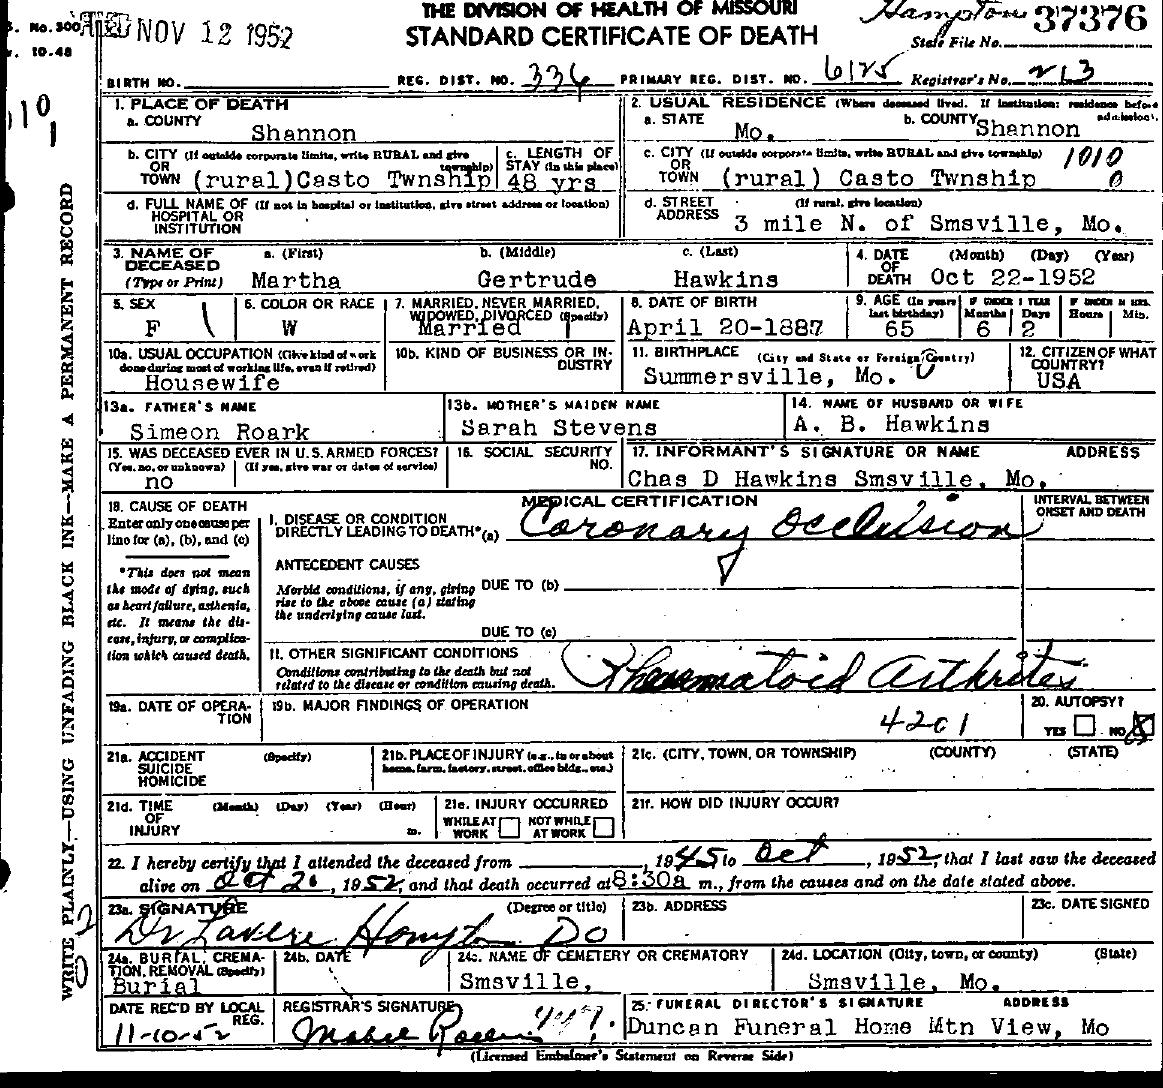 THE DIVISION OF HEALTH OF MISSOURI
STANDARD CERTIFICATE OF DEATH
No. 300
10-48
NOV 12 1952
Hampton 37376
State File No.
BIRTH NO. REG. DIST. NO. 336 PRIMARY REG. DIST. NO. 6125 Registrar's No. 213
1. PLACE OF DEATH
a. COUNTY Shannon
2. USUAL RESIDENCE (Where deceased lived. If institution: residence before admission).
a. STATE Mo. b. COUNTY Shannon
b. CITY (If outside corporate limits, write RURAL and give township) OR TOWN (rural)Casto Twnship
c. LENGTH OF STAY (in this place) 48 yrs
c. CITY (If outside corporate limits, write RURAL and give township) OR TOWN (rural) Casto Twnship
1010
0
d. FULL NAME OF (If not in hospital or institution, give street address or location) HOSPITAL OR INSTITUTION
d. STREET ADDRESS (If rural, give location) 3 mile N. of Smsville, Mo.
3. NAME OF DECEASED (Type or Print) a. (First) Martha b. (Middle) Gertrude c. (Last) Hawkins
4. DATE OF DEATH (Month) (Day) (Year) Oct 22-1952
5. SEX F
6. COLOR OR RACE W
7. MARRIED, NEVER MARRIED, WIDOWED, DIVORCED (Specify) Married
8. DATE OF BIRTH April 20-1887
9. AGE (In years last birthday) 65 IF UNDER 1 YEAR Months 6 Days 2 IF UNDER 24 HRS. Hours Min.
10a. USUAL OCCUPATION (Give kind of work done during most of working life, even if retired) Housewife
10b. KIND OF BUSINESS OR INDUSTRY
11. BIRTHPLACE (City and State or Foreign Country) Summersville, Mo.
12. CITIZEN OF WHAT COUNTRY? USA
13a. FATHER'S NAME Simeon Roark
13b. MOTHER'S MAIDEN NAME Sarah Stevens
14. NAME OF HUSBAND OR WIFE A. B. Hawkins
15. WAS DECEASED EVER IN U.S. ARMED FORCES? (Yes, no, or unknown) (If yes, give war or dates of service) no
16. SOCIAL SECURITY NO.
17. INFORMANT'S SIGNATURE OR NAME ADDRESS Chas D Hawkins Smsville, Mo.
18. CAUSE OF DEATH
Enter only one cause per line for (a), (b), and (c)
*This does not mean the mode of dying, such as heart failure, asthenia, etc. It means the disease, injury, or complication which caused death.
MEDICAL CERTIFICATION
INTERVAL BETWEEN ONSET AND DEATH
I. DISEASE OR CONDITION DIRECTLY LEADING TO DEATH*(a) Coronary Occlusion
ANTECEDENT CAUSES
Morbid conditions, if any, giving rise to the above cause (a) stating the underlying cause last.
DUE TO (b)
DUE TO (c)
II. OTHER SIGNIFICANT CONDITIONS
Conditions contributing to the death but not related to the disease or condition causing death.
Rheumatoid Arthrites
19a. DATE OF OPERATION
19b. MAJOR FINDINGS OF OPERATION
4201
20. AUTOPSY? YES NO X
21a. ACCIDENT SUICIDE HOMICIDE (Specify)
21b. PLACE OF INJURY (e.g., in or about home, farm, factory, street, office bldg., etc.)
21c. (CITY, TOWN, OR TOWNSHIP) (COUNTY) (STATE)
21d. TIME OF INJURY (Month) (Day) (Year) (Hour) m.
21e. INJURY OCCURRED WHILE AT WORK NOT WHILE AT WORK
21f. HOW DID INJURY OCCUR?
22. I hereby certify that I attended the deceased from , 1945 to Oct , 1952, that I last saw the deceased
alive on Oct 20, 1952, and that death occurred at 8:30a m., from the causes and on the date stated above.
23a. SIGNATURE (Degree or title) Dr Lavere Hampton DO
23b. ADDRESS
23c. DATE SIGNED
24a. BURIAL, CREMATION, REMOVAL (Specify) Burial
24b. DATE
24c. NAME OF CEMETERY OR CREMATORY Smsville,
24d. LOCATION (City, town, or county) (State) Smsville, Mo.
DATE REC'D BY LOCAL REG. 11-10-52
REGISTRAR'S SIGNATURE Mabel
25. FUNERAL DIRECTOR'S SIGNATURE ADDRESS Duncan Funeral Home Mtn View, Mo
(Licensed Embalmer's Statement on Reverse Side)
WRITE PLAINLY—USING UNFADING BLACK INK—MAKE A PERMANENT RECORD